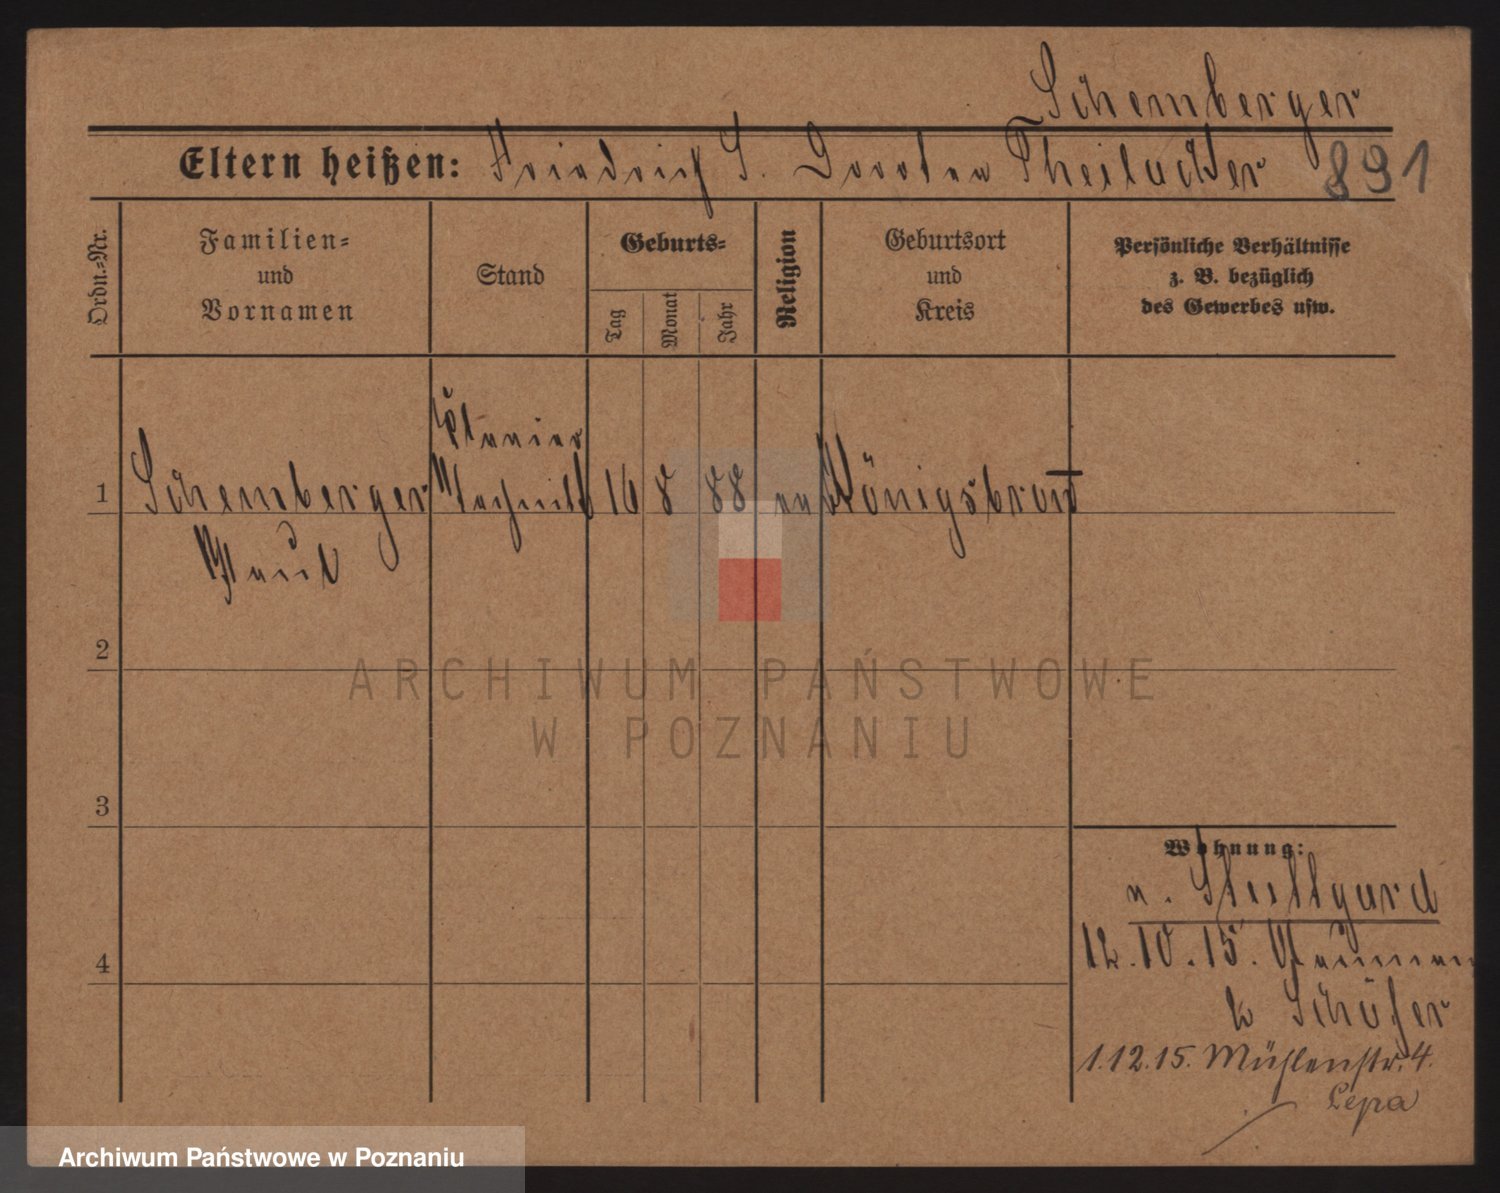 Schemberger
Eltern heißen: Friedrich S. Dorotea Theilacker 891
Ordn.-Nr.
Familien-
und
Vornamen
Stand
Geburts-
Tag
Monat
Jahr
Religion
Geburtsort
und
Kreis
Persönliche Verhältnisse
z. B. bezüglich
des Gewerbes usw.
1
Schemberger
Paul
Klavier
Techniker
16 8 88 ev Königsbronn
2
3
4
Wohnung:
n. Stuttgard
12.10.15.
b Schäfer
1.12.15. Mühlenstr. 4.
Lepa
ARCHIWUM PAŃSTWOWE
W POZNANIU
Archiwum Państwowe w Poznaniu